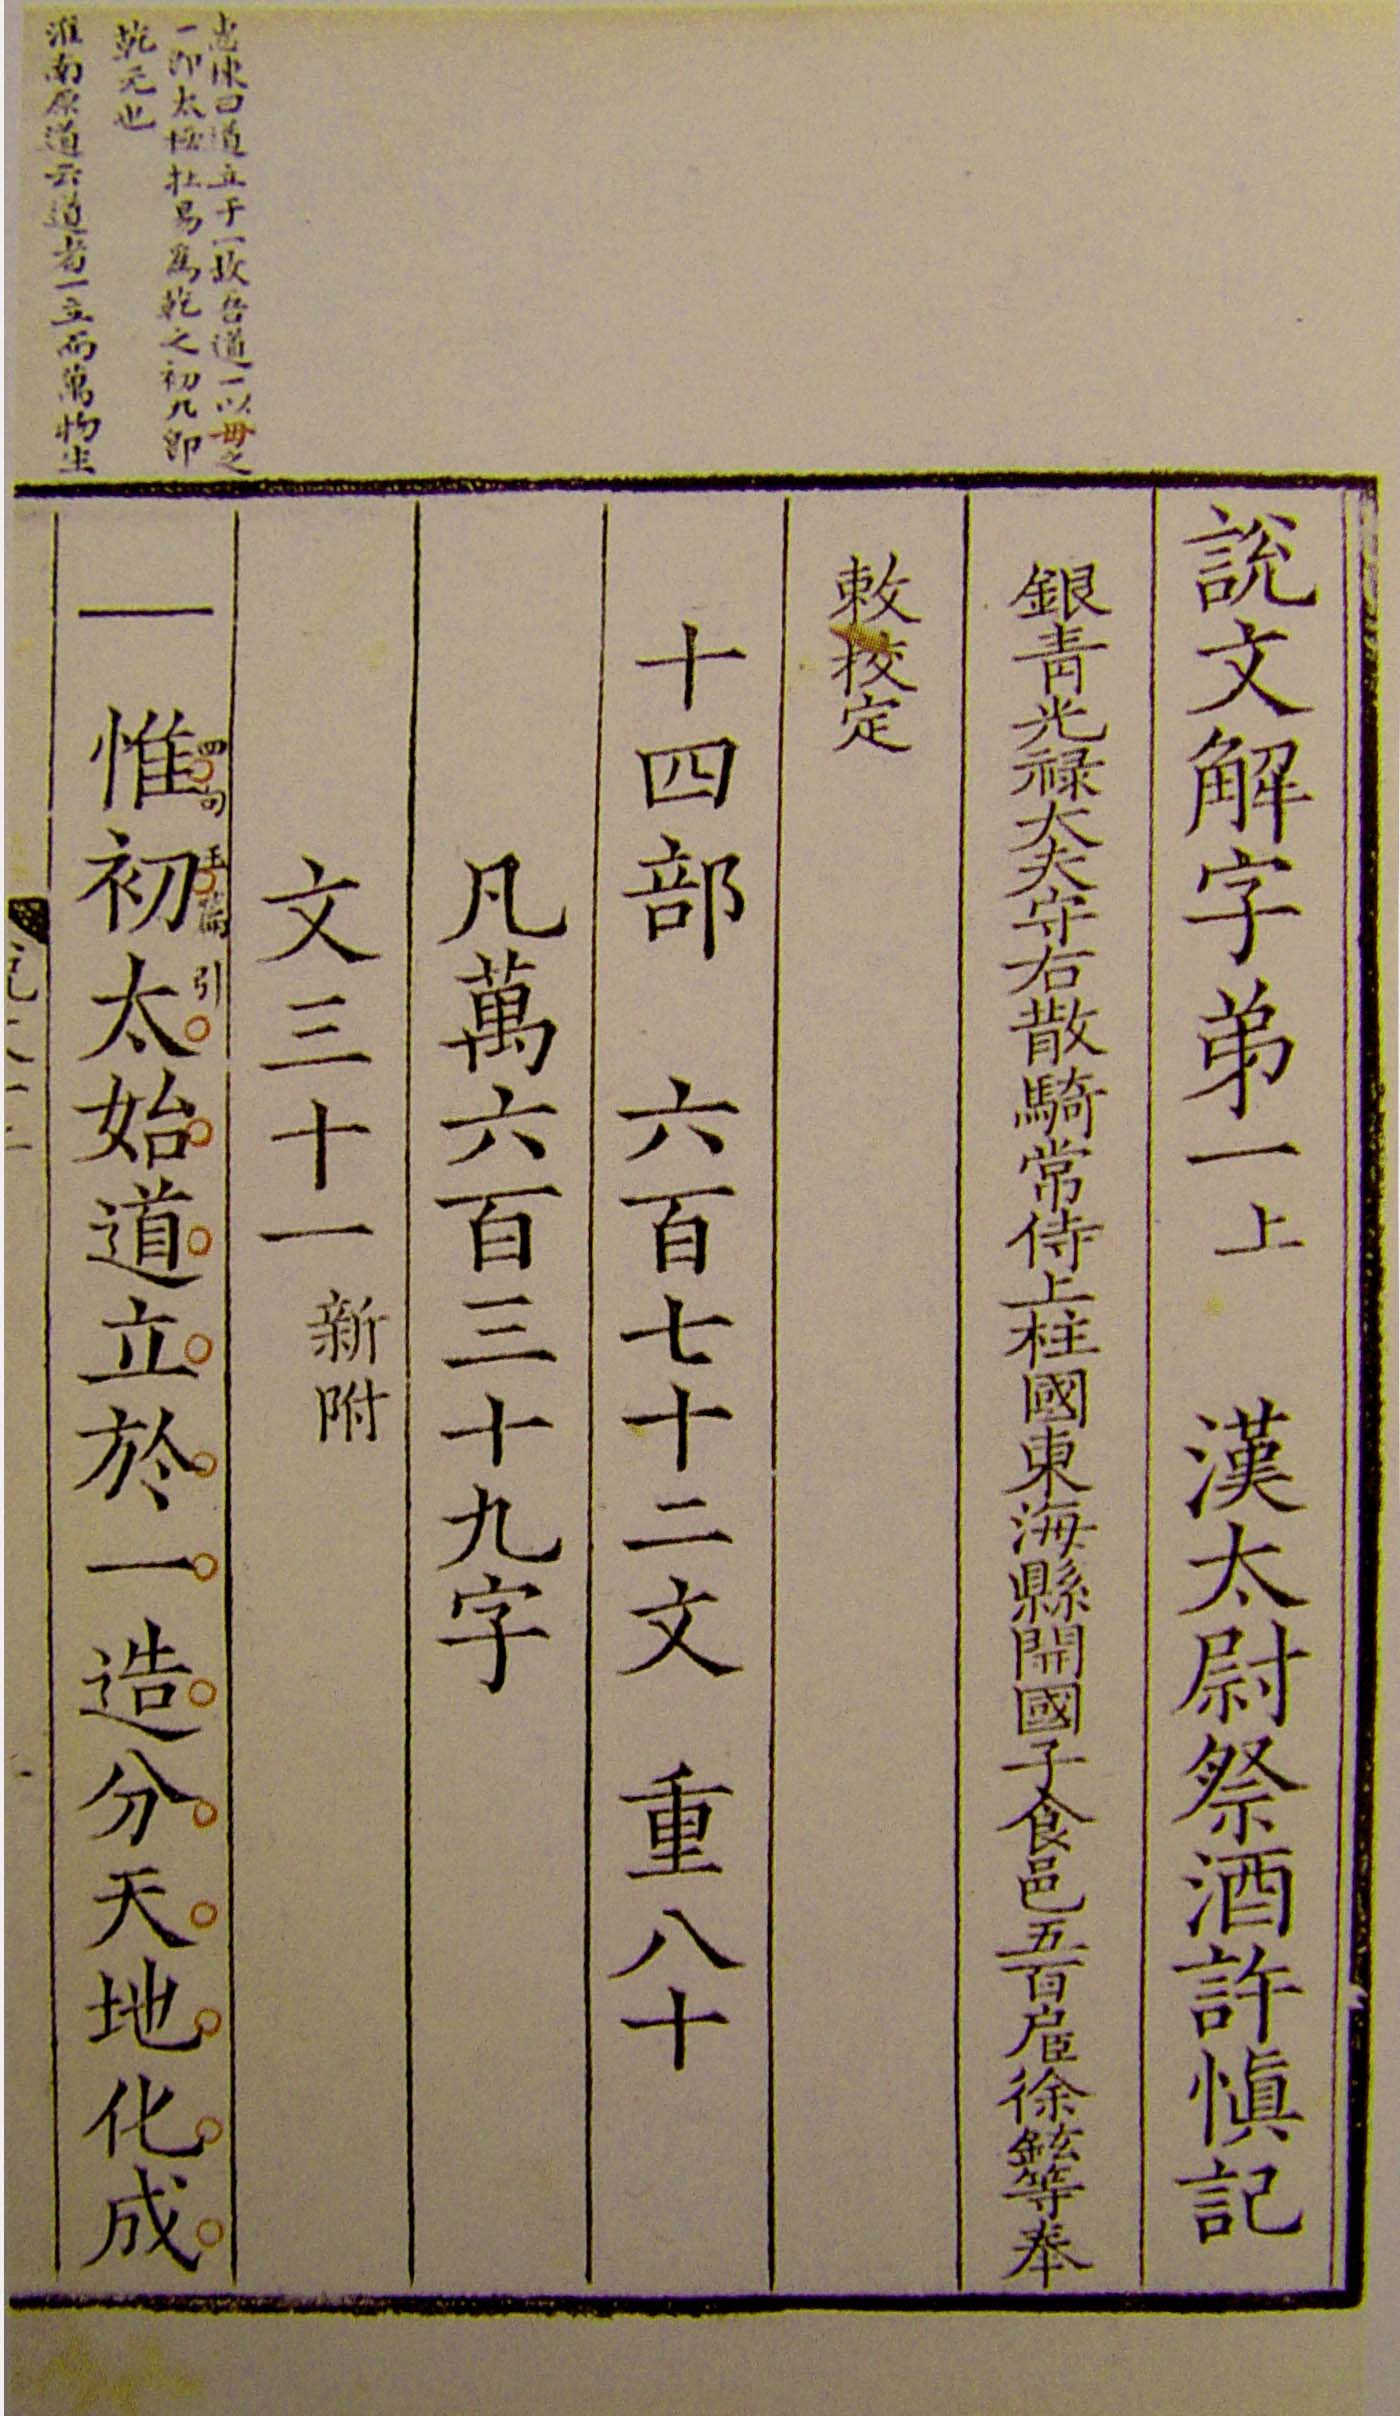 說文解字弟一上 漢太尉祭酒許慎記
銀青光祿大夫守右散騎常侍上柱國東海縣開國子食邑五百戶臣徐鉉等奉
敕校定
十四部 六百七十二文 重八十
凡萬六百三十九字
文三十一新附
一 惟初太始道立於一造分天地化成
四句玉篇引
曰道立于一故吾道一以毌之
一卽太極在易爲乾之初九卽
乾元也
淮南原道云道者一立而萬物生